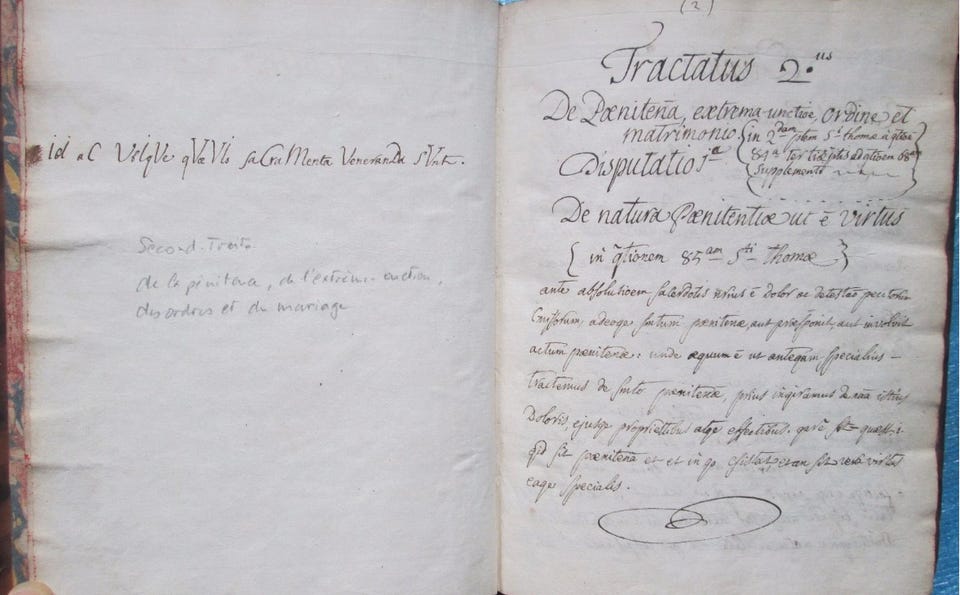 id aC UtIqVe qVæVIs saCraMenta VeneranDa sVnt.
Second. Traité
de la pénitence, de l'extrême-onction,
des ordres et du mariage
(2)
Tractatus 2.us
De Pœniteña, extrema-unctioe, ordine et
matrimonio
{in 2dam ptem Sti thomæ a qtioe
84a ter tiæ ptis ad qtioem 68am
Supplementi
Disputatio 1a
De natura Pœnitentiæ ut ē virtus
{ in q̃tionem 85am Sti thomæ }
ante absolutioem sacerdotis prius ē dolor ac detestão pectoris
adeoqe smtum pœniteñæ, aut præsponit, aut involvit
actum pœniteñæ: unde æquum ē ut anteqam specialius
tractemus de smto pœniteñæ, prius inqiramus de naã istius
Doloris, ejusqe proprietibus atqe effectibus. qare
qid sit pœniteña et et in qo et an sit vera virtus
eaqe specialis.